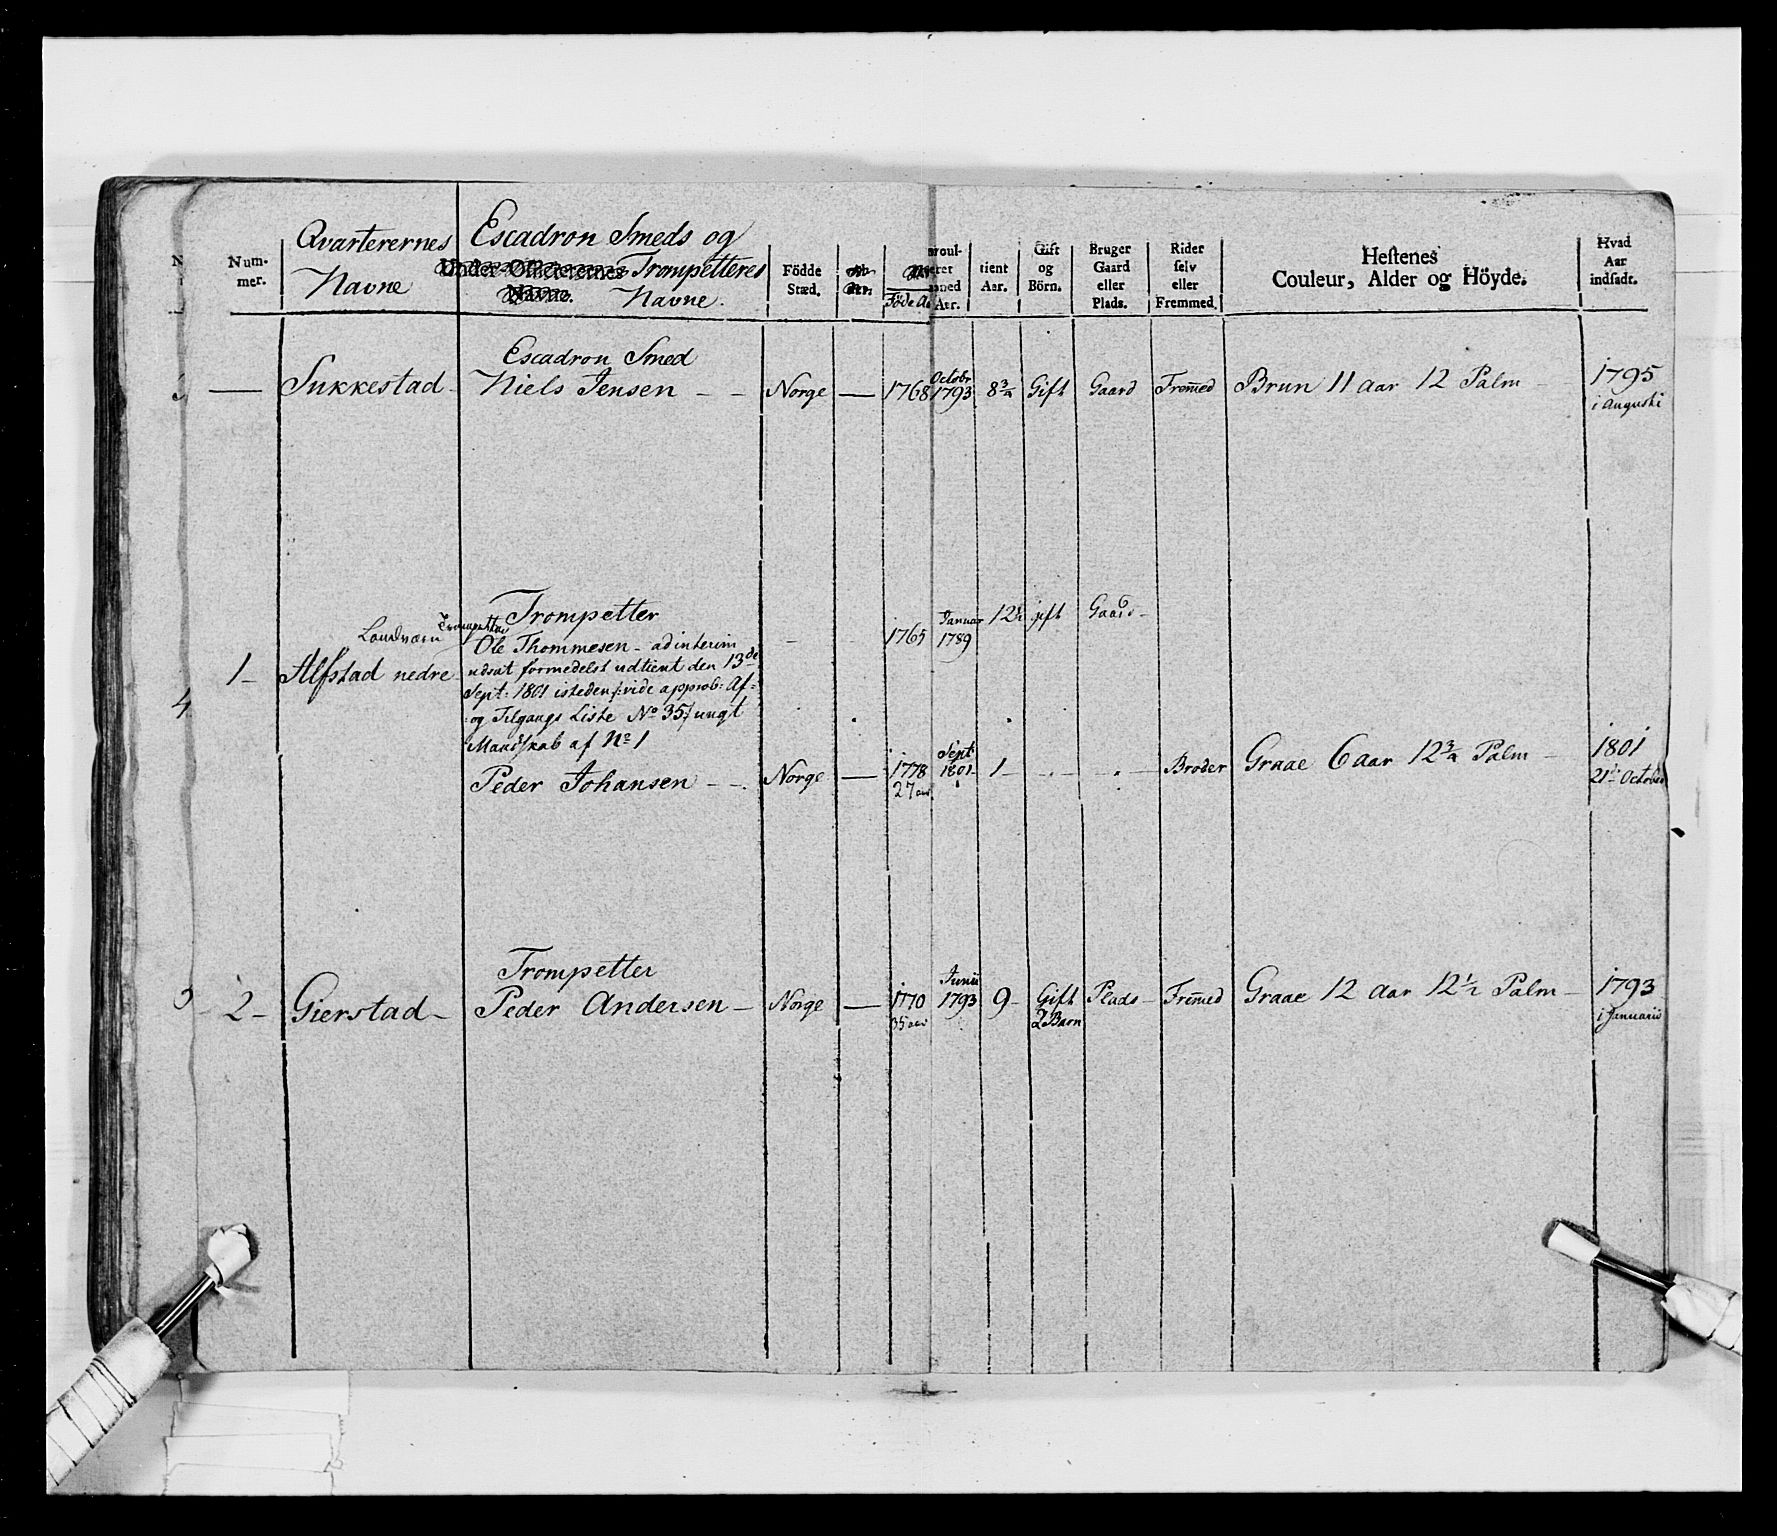 Qvarterernes Escadron Smeds og
Num-
mer.
Navne
Under-Officerernes Trompetteres
Navne. Navne.
Födde
Stæd.
Föde A
roul-
eret
Aar.
tient
Aar.
Gift
og
Börn.
Bruger
Gaard
eller
Plads.
Rider
selv
eller
Fremmed.
Hestenes
Couleur, Alder og Höyde.
Hvad
Aar
indsadt.
Escadron Smed
— Sukkestad - Niels Jensen - - Norge — 1768 Octobr 1793 8 3/4 Gift Gaard Fremed Brun 11 aar 12 Palm - 1795
i Augusti
Trompetter
Landværn Trompetter
1 - Alfstad nedre Ole Thommesen - ad interim - 1765 Januar 1789 12 1/2 gift Gaard -
udsat formedelst udtient den 13de
Sept: 1801 isteden /: vide approb: Af-
og Tilgangs Liste No 35 :/ ungt
Mandskab af No 1
Peder Johansen - - Norge — 1778 Sept 1801 1 - Broder Graae 6 aar 12 3/4 Palm - 1801
27 aar 21de October
4
Trompetter
2 - Gierstad - Peder Andersen - Norge — 1770 Junii 1793 9 - Gift Plads - Fremed Graae 12 aar 12 1/2 Palm - 1793
35 aar 2 Barn i Januarii